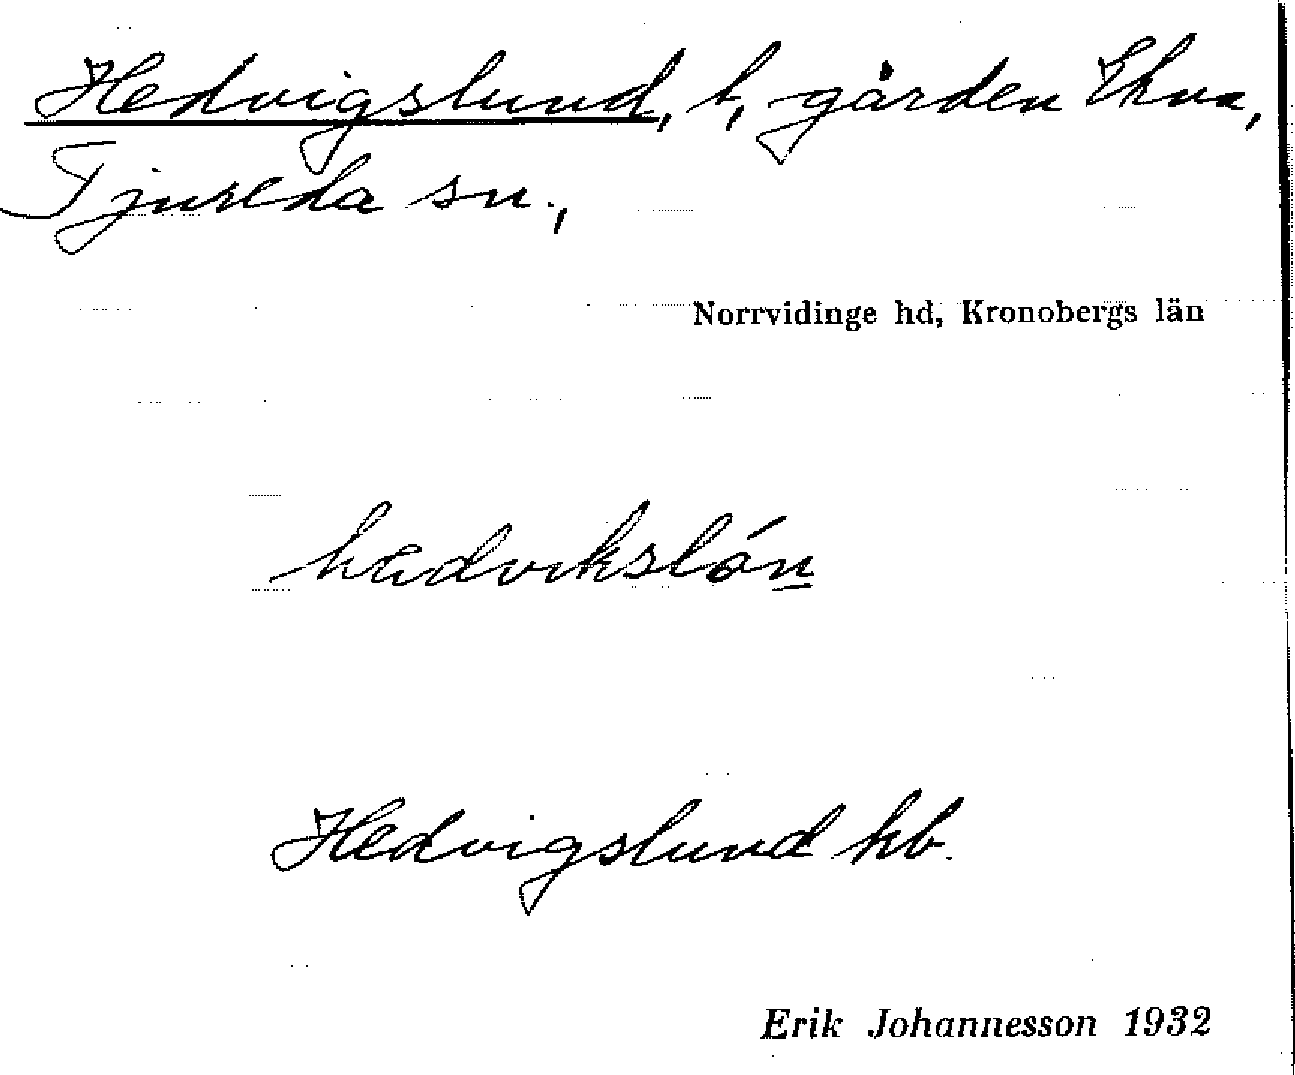 Hedvigslund, t, gården Ekna,
Tjureda sn.,
Norrvidinge hd, Kronobergs län
hædvikslón
Hedvigslund kb.
Erik Johannesson 1932